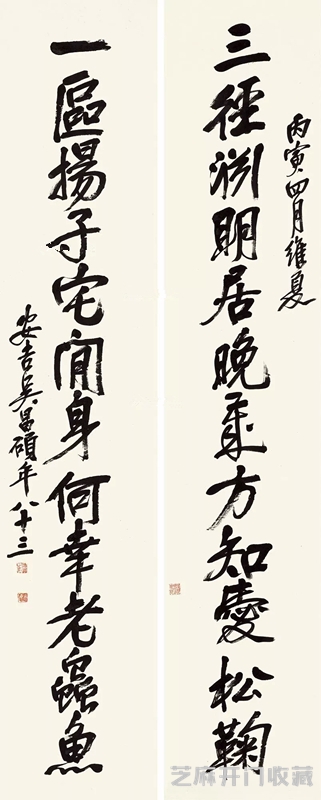 丙寅四月維夏
三徑淵明居晚方知愛松鞠
一區揚子宅閒身何幸老蟲魚
安吉吳昌碩年八十三
芝麻开门收藏